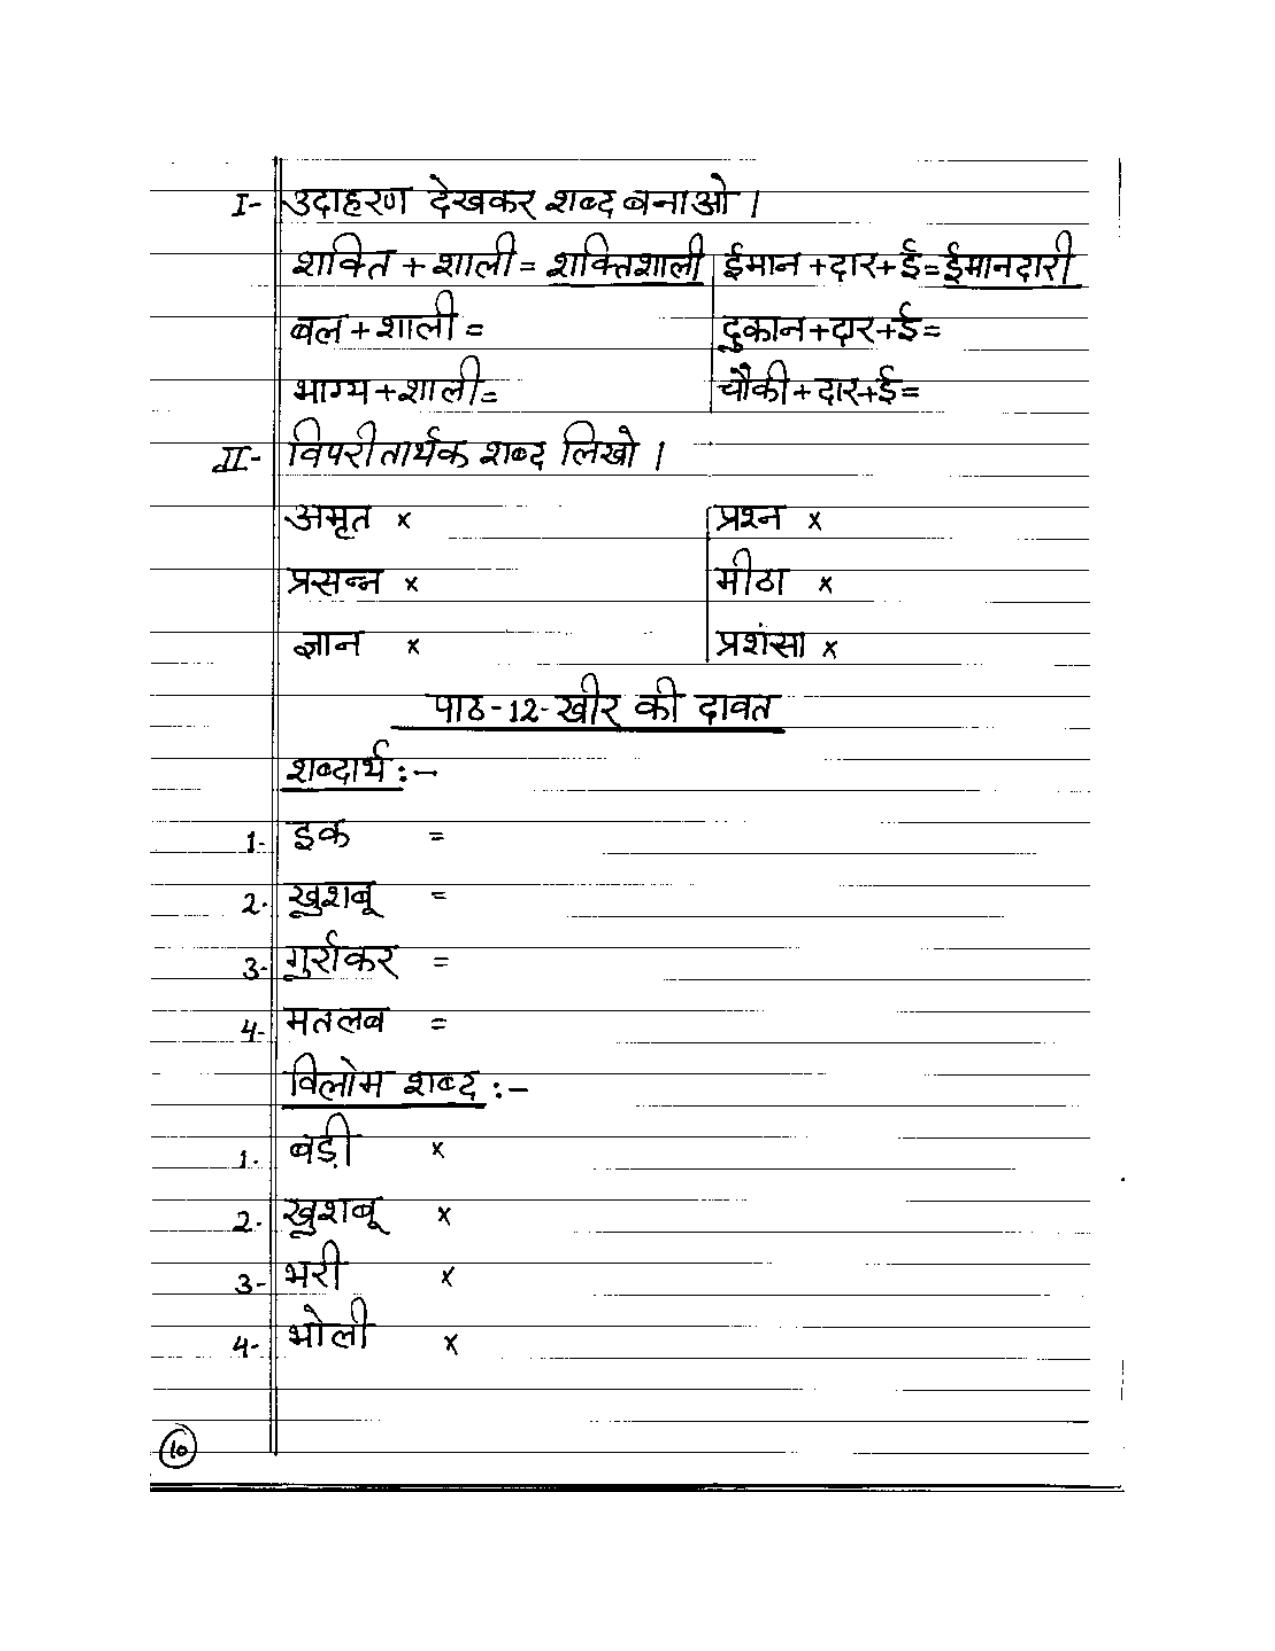 I- उदाहरण देखकर शब्द बनाओ ।
शक्ति + शाली = शक्तिशाली | ईमान + दार + ई = ईमानदारी
बल + शाली = दुकान + दार + ई =
भाग्य + शाली = चौकी + दार + ई =
II- विपरीतार्थक शब्द लिखो ।
अमृत × प्रश्न ×
प्रसन्न × मीठा ×
ज्ञान × प्रशंसा ×
पाठ - 12 - खीर की दावत
शब्दार्थ :-
1. इक =
2. खुशबू =
3- गुर्राकर =
4- मतलब =
विलोम शब्द :-
1. बड़ी ×
2. खुशबू ×
3- भरी ×
4- भोली ×
10